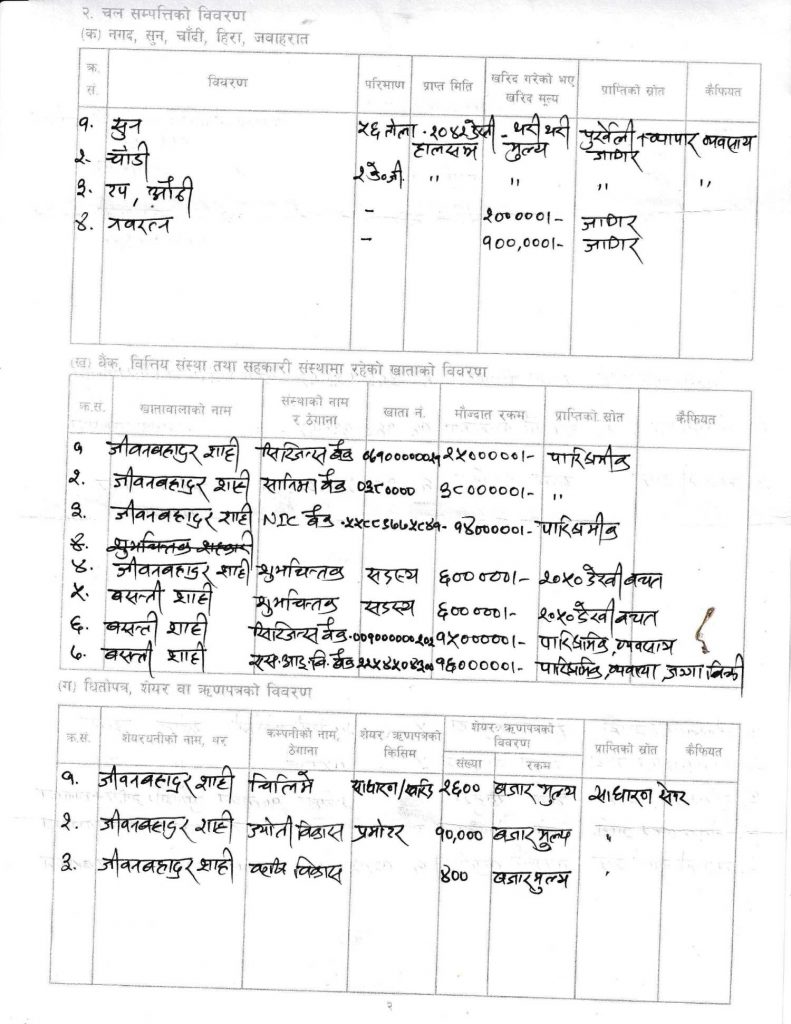 २. चल सम्पत्तिको विवरण
(क) नगद, सुन, चाँदी, हिरा, जवाहरात
क्र. सं. विवरण परिमाण प्राप्त मिति खरिद गरेको भए खरिद मूल्य प्राप्तिको स्रोत कैफियत
१. सुन ५६ तोला २०४२ देखी हालसम्म थरी थरी मुल्य पुर्खेली + व्यापार व्यवसाय जागिर
२- चाँदी २ के.जी. " " " "
३. रप, औंठी - २०००००।- जागिर
४. नवरत्न - १००,०००।- जागिर
(ख) बैंक, वित्तिय संस्था तथा सहकारी संस्थामा रहेको खाताको विवरण
क्र.सं. खातावालाको नाम संस्थाको नाम र ठेगाना खाता नं. मौज्दात रकम प्राप्तिको स्रोत कैफियत
१ जीवनबहादुर शाही सिटिजन्स बैंक २५०००००।- पारिश्रमीक
२. जीवनबहादुर शाही सानिमा बैंक ०३८०००० ३८०००००।- "
३. जीवनबहादुर शाही NIC बैंक १४०००००।- पारिश्रमीक
४. जीवनबहादुर शाही शुभचिन्तक सदस्य ६०००००।- २०५० देखी बचत
५. बसन्ती शाही शुभचिन्तक सदस्य ६०००००।- २०५० देखी बचत
६. बसन्ती शाही सिटिजन्स बैंक १५०००००।- पारिश्रमिक, व्यवसाय
७. बसन्ती शाही एस.आइ.वि. बैंक १६०००००।- पारिश्रमिक, व्यवसाय, जग्गा बिक्री
(ग) धितोपत्र, शेयर वा ऋणपत्रको विवरण
क्र.सं. शेयरधनीको नाम, थर कम्पनीको नाम, ठेगाना शेयर/ऋणपत्रको किसिम शेयर/ऋणपत्रको विवरण संख्या रकम प्राप्तिको स्रोत कैफियत
१. जीवनबहादुर शाही चिलिमे साधारण २६०० बजार मुल्य साधारण सेयर
२. जीवनबहादुर शाही ज्योती विकास प्रमोटर १०,००० बजार मुल्य "
३. जीवनबहादुर शाही विकास ४०० बजार मुल्य "
२